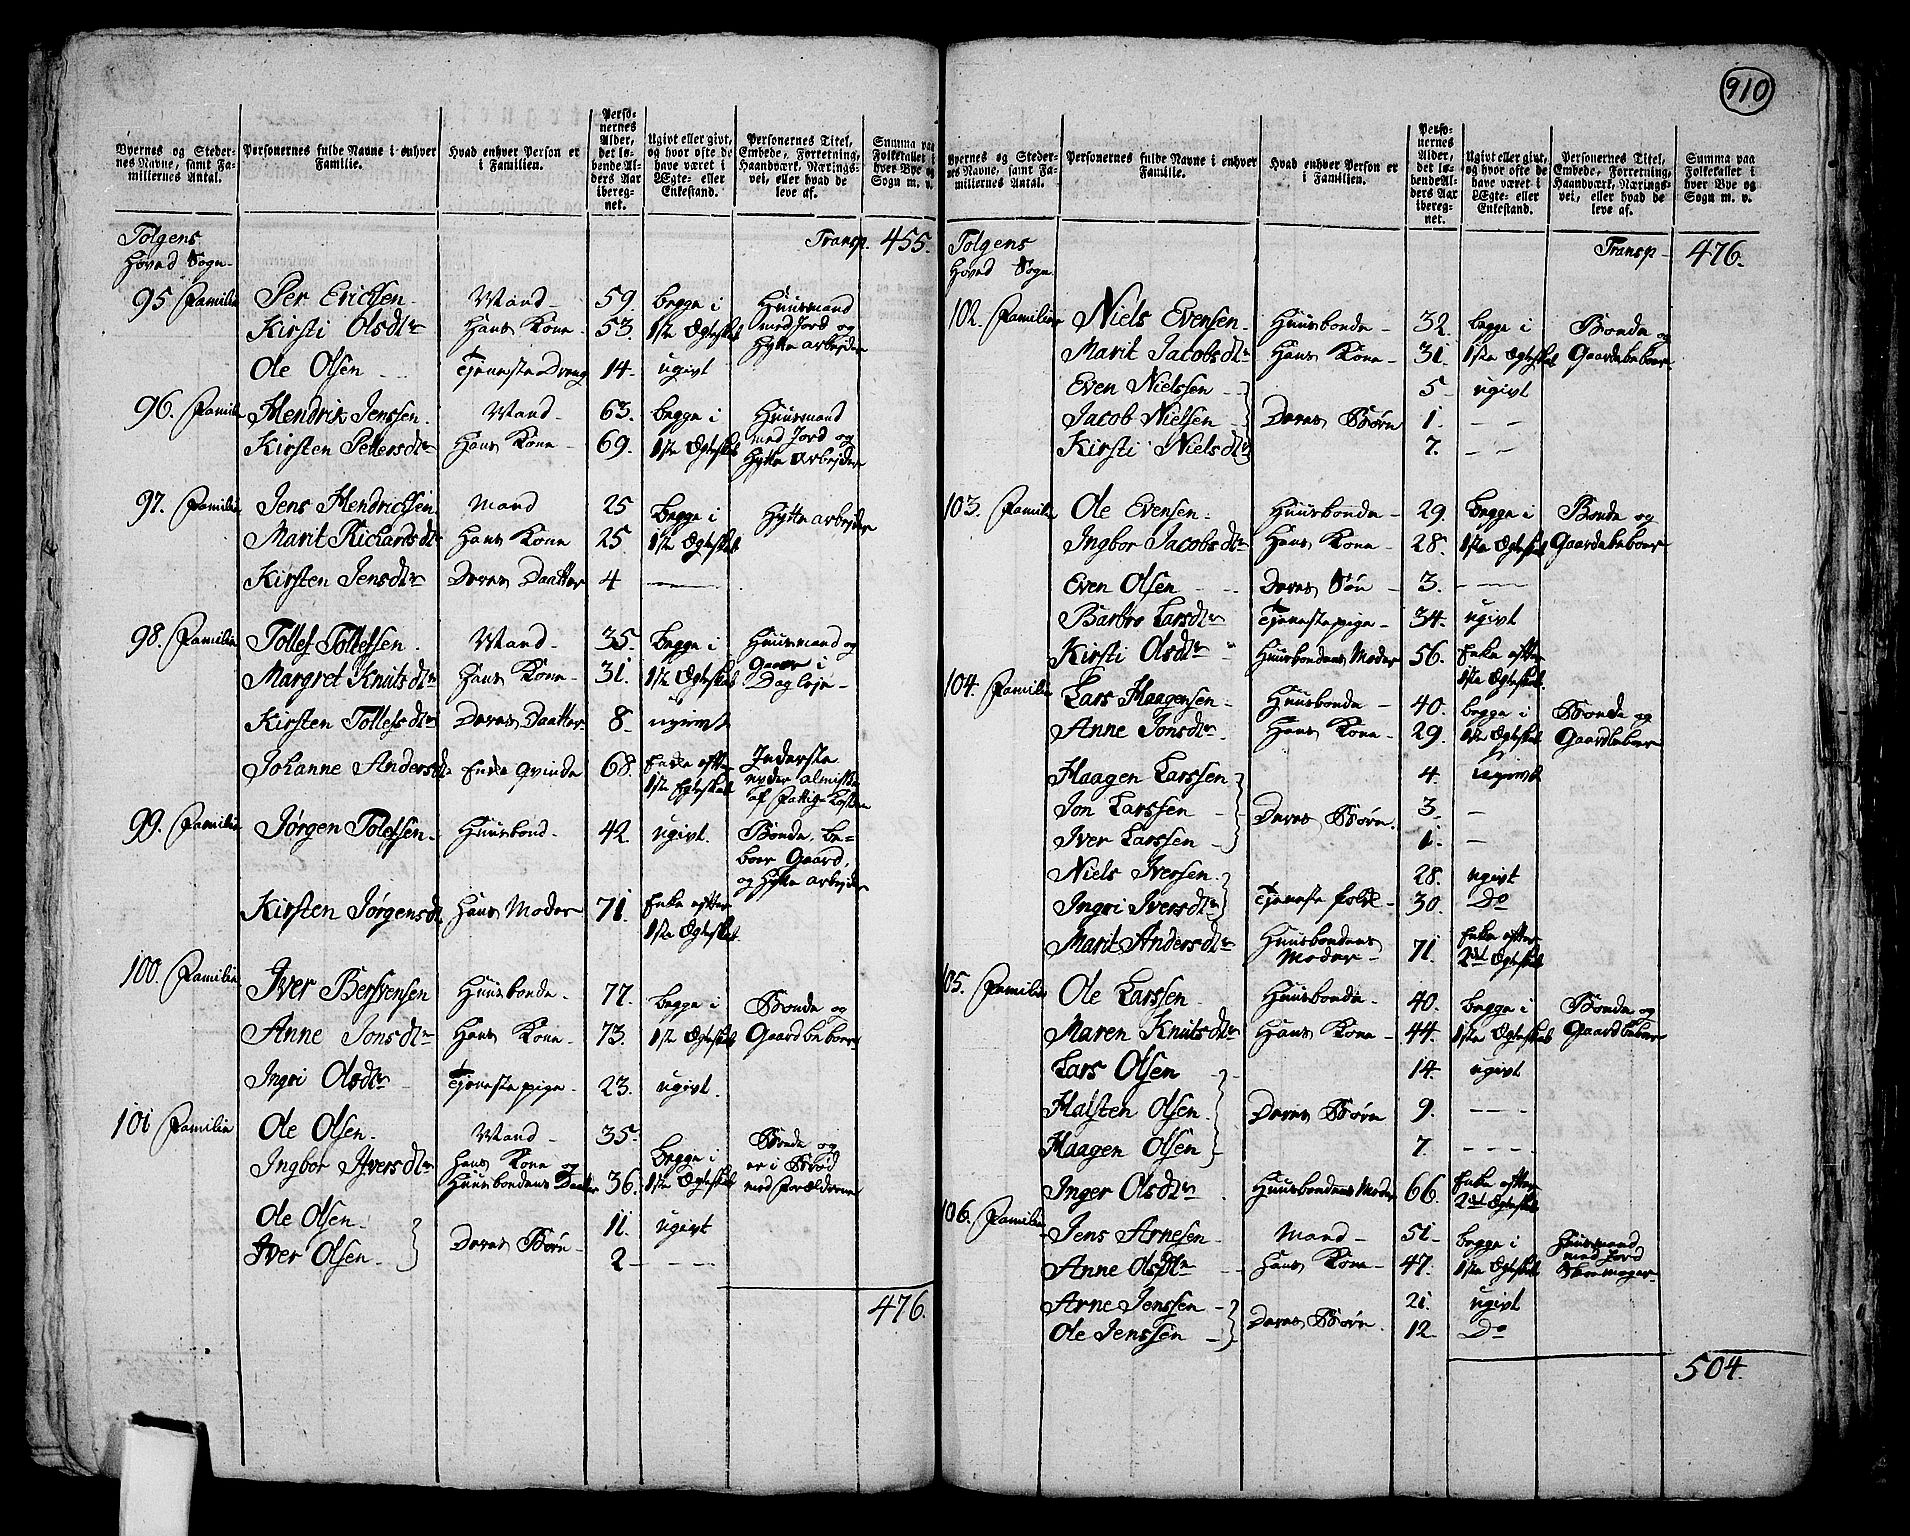 910
Byernes og Stedernes Navne, samt Familiernes Antal.
Personernes fulde Navne i enhver Familie.
Hvad enhver Person er i Familien.
Personernes Alder, det løbende Alders Aar iberegnet.
Ugivt eller givt, og hvor ofte de have været i Ægte- eller Enkestand.
Personernes Titel, Embede, Forretning, Haandværk, Næringsvei, eller hvad de leve af.
Summa paa Folketallet i hver Bye og Sogn m. v.
Tolgens Transp. 455.
Hoved Sogn
95 Familie Per Ericksen Mand 59. begge i Huusmand
Kirsti Olsdtr Hans Kone 53. 1ste Ægteskab med Jord og Hytte arbejder
Ole Olsen Tjeneste Dreng 14. ugivt
96. Familie Hendrik Jenssen. Mand 63. begge i Huusmand
Kirsten Pettersdtr Hans Kone 69. 1ste Ægteskab med Jord og Hytte arbejder
97. Familie Jens Hendrichsen Mand 25 begge i Hytte arbejder
Marit Richardsdtr Hans Kone 25. 1ste Ægteskab
Kirsten Jensdtr Deres Daatter 4 —
98. Familie Tollef Tollefsen. Mand 35. begge i Huusmand og
Margret Knutsdtr Hans Kone 31. 1ste Ægteskab gaaer i Dagleje
Kirsten Tollefsdtr Deres Daatter 8. ugivt
Johanne Andersd Enke Qvinde 68. Enke efter 1ste Egteskab Inderste nyder almisse af Fattige Casten
99. Familie Jørgen Tolefsen. Huusbond 42. ugivt. Bonde, beboer Gaard, og Hytte arbejder
Kirsten Jørgensd. Hans Moder 71. Enke efter 1ste Ægteskab
100. Familie Iver Bersvensen Huusbonde 77. begge i Bonde og
Anne Jonsdtr Hans Kone 73. 1ste Ægteskab Gaardbeboer
Ingri Olsdtr Tjenestepige 23. ugivt.
101 Familie Ole Olsen. Mand 35. begge i Bonde og
Ingbor Iversdtr Hans Kone og Huusbondens Daatter 36. 1ste Ægteskab er i Brød med Forældrene
Ole Olsen. 11. ugivt
Iver Olsen } Deres Børn 2 — —
476.
Byernes og Stedernes Navne, samt Familiernes Antal.
Personernes fulde Navne i enhver Familie.
Hvad enhver Person er i Familien.
Personernes Alder, det løbende Alders Aar iberegnet.
Ugivt eller givt, og hvor ofte de have været i Ægte- eller Enkestand.
Personernes Titel, Embede, Forretning, Haandværk, Næringsvei, eller hvad de leve af.
Summa paa Folketallet i hver Bye og Sogn m. v.
Tolgens Transp 476.
Hoved Sogn
102. Familie Niels Evensen. Huusbonde 32. begge i Bonde og
Marit Jacobsdtr Hans Kone 31. 1ste Ægteskab Gaardebeboer
Even Nielssen 5 ugivt
Jacob Nielsen } Deres Børn 1. — —
Kirsti Nielsdtr 7. — —
103. Familie Ole Evensen. Huusbonde 29. begge i Bonde og
Ingbor Jacobsdtr Hans Kone 28. 1ste Ægteskab Gaardebeboer
Even Olsen Deres Søn 3. —
Barbro Larsdtr Tjenestepige 34. ugivt
Kirsti Olsdtr Huusbondens Moder 56. Enke efter 1ste Ægteskab.
104. Familie Lars Haagensen Huusbonde 40. begge i Bonde og
Anne Jonsdtr Hans Kone 29. 1ste Ægteskab Gaardbeboer
Haagen Larssen 4. ugivt
Jon Larssen } Deres Børn. 3. —
Iver Larssen 1. —
Niels Iversen. 28. ugivt
Ingri Iversdtr } Tjeneste folk 30. Do
Marit Andersdtr Huusbondens Moder 71. Enke efter 2det Ægteskab
105. Familie Ole Larssen. Huusbonde 40. begge i Bonde og
Maren Knutsdtr Hans Kone 44. 1ste Ægteskab Gaardbeboer
Lars Olsen 14. ugivt
Halsten Olsen } Deres Børn 9. ---
Haagen Olsen 7. ----
Inger Olsdtr Huusbondens Moder 66. Enke efter 2det Ægteskab
106. Familie Jens Arnesen Mand 51. begge i Huusmand med Jord
Anne Olsdtr Hans Kone 47. 1ste Ægteskab Skoemager
Arne Jenssen 21. ugivt
Ole Jenssen } Deres Børn. 12. Do
504.